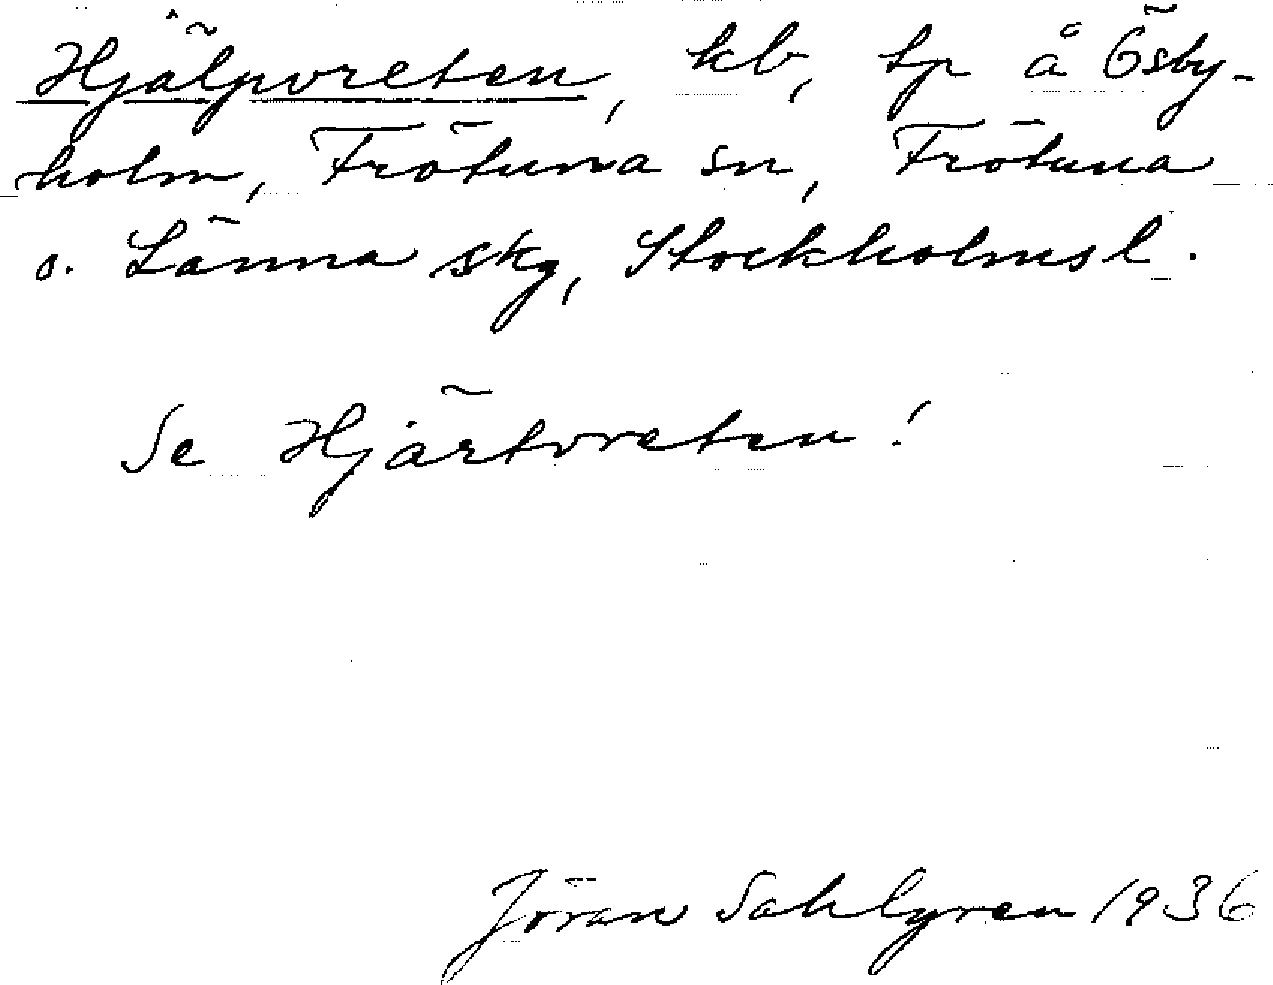 Hjälpvreten, kb, tp å Ösby-
holm, Frötuna sn, Frötuna
o. Länna skg, Stockholmsl.
Se Hjärtvreten!
Jöran Sahlgren 1936